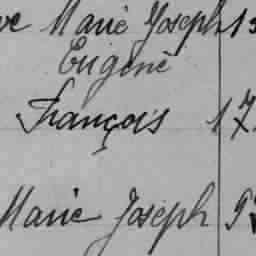 Marie Joseph 1
Eugène
François 17
Marie Joseph 9